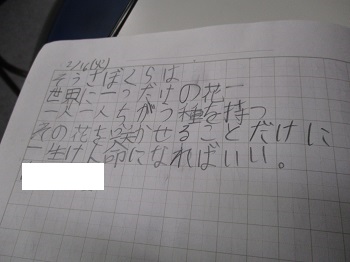 2/16(火)
そうさぼくらは
世界に一つだけの花一
人一人ちがう種を持つ
その花を咲かせることだけに
一生けん命になればいい。